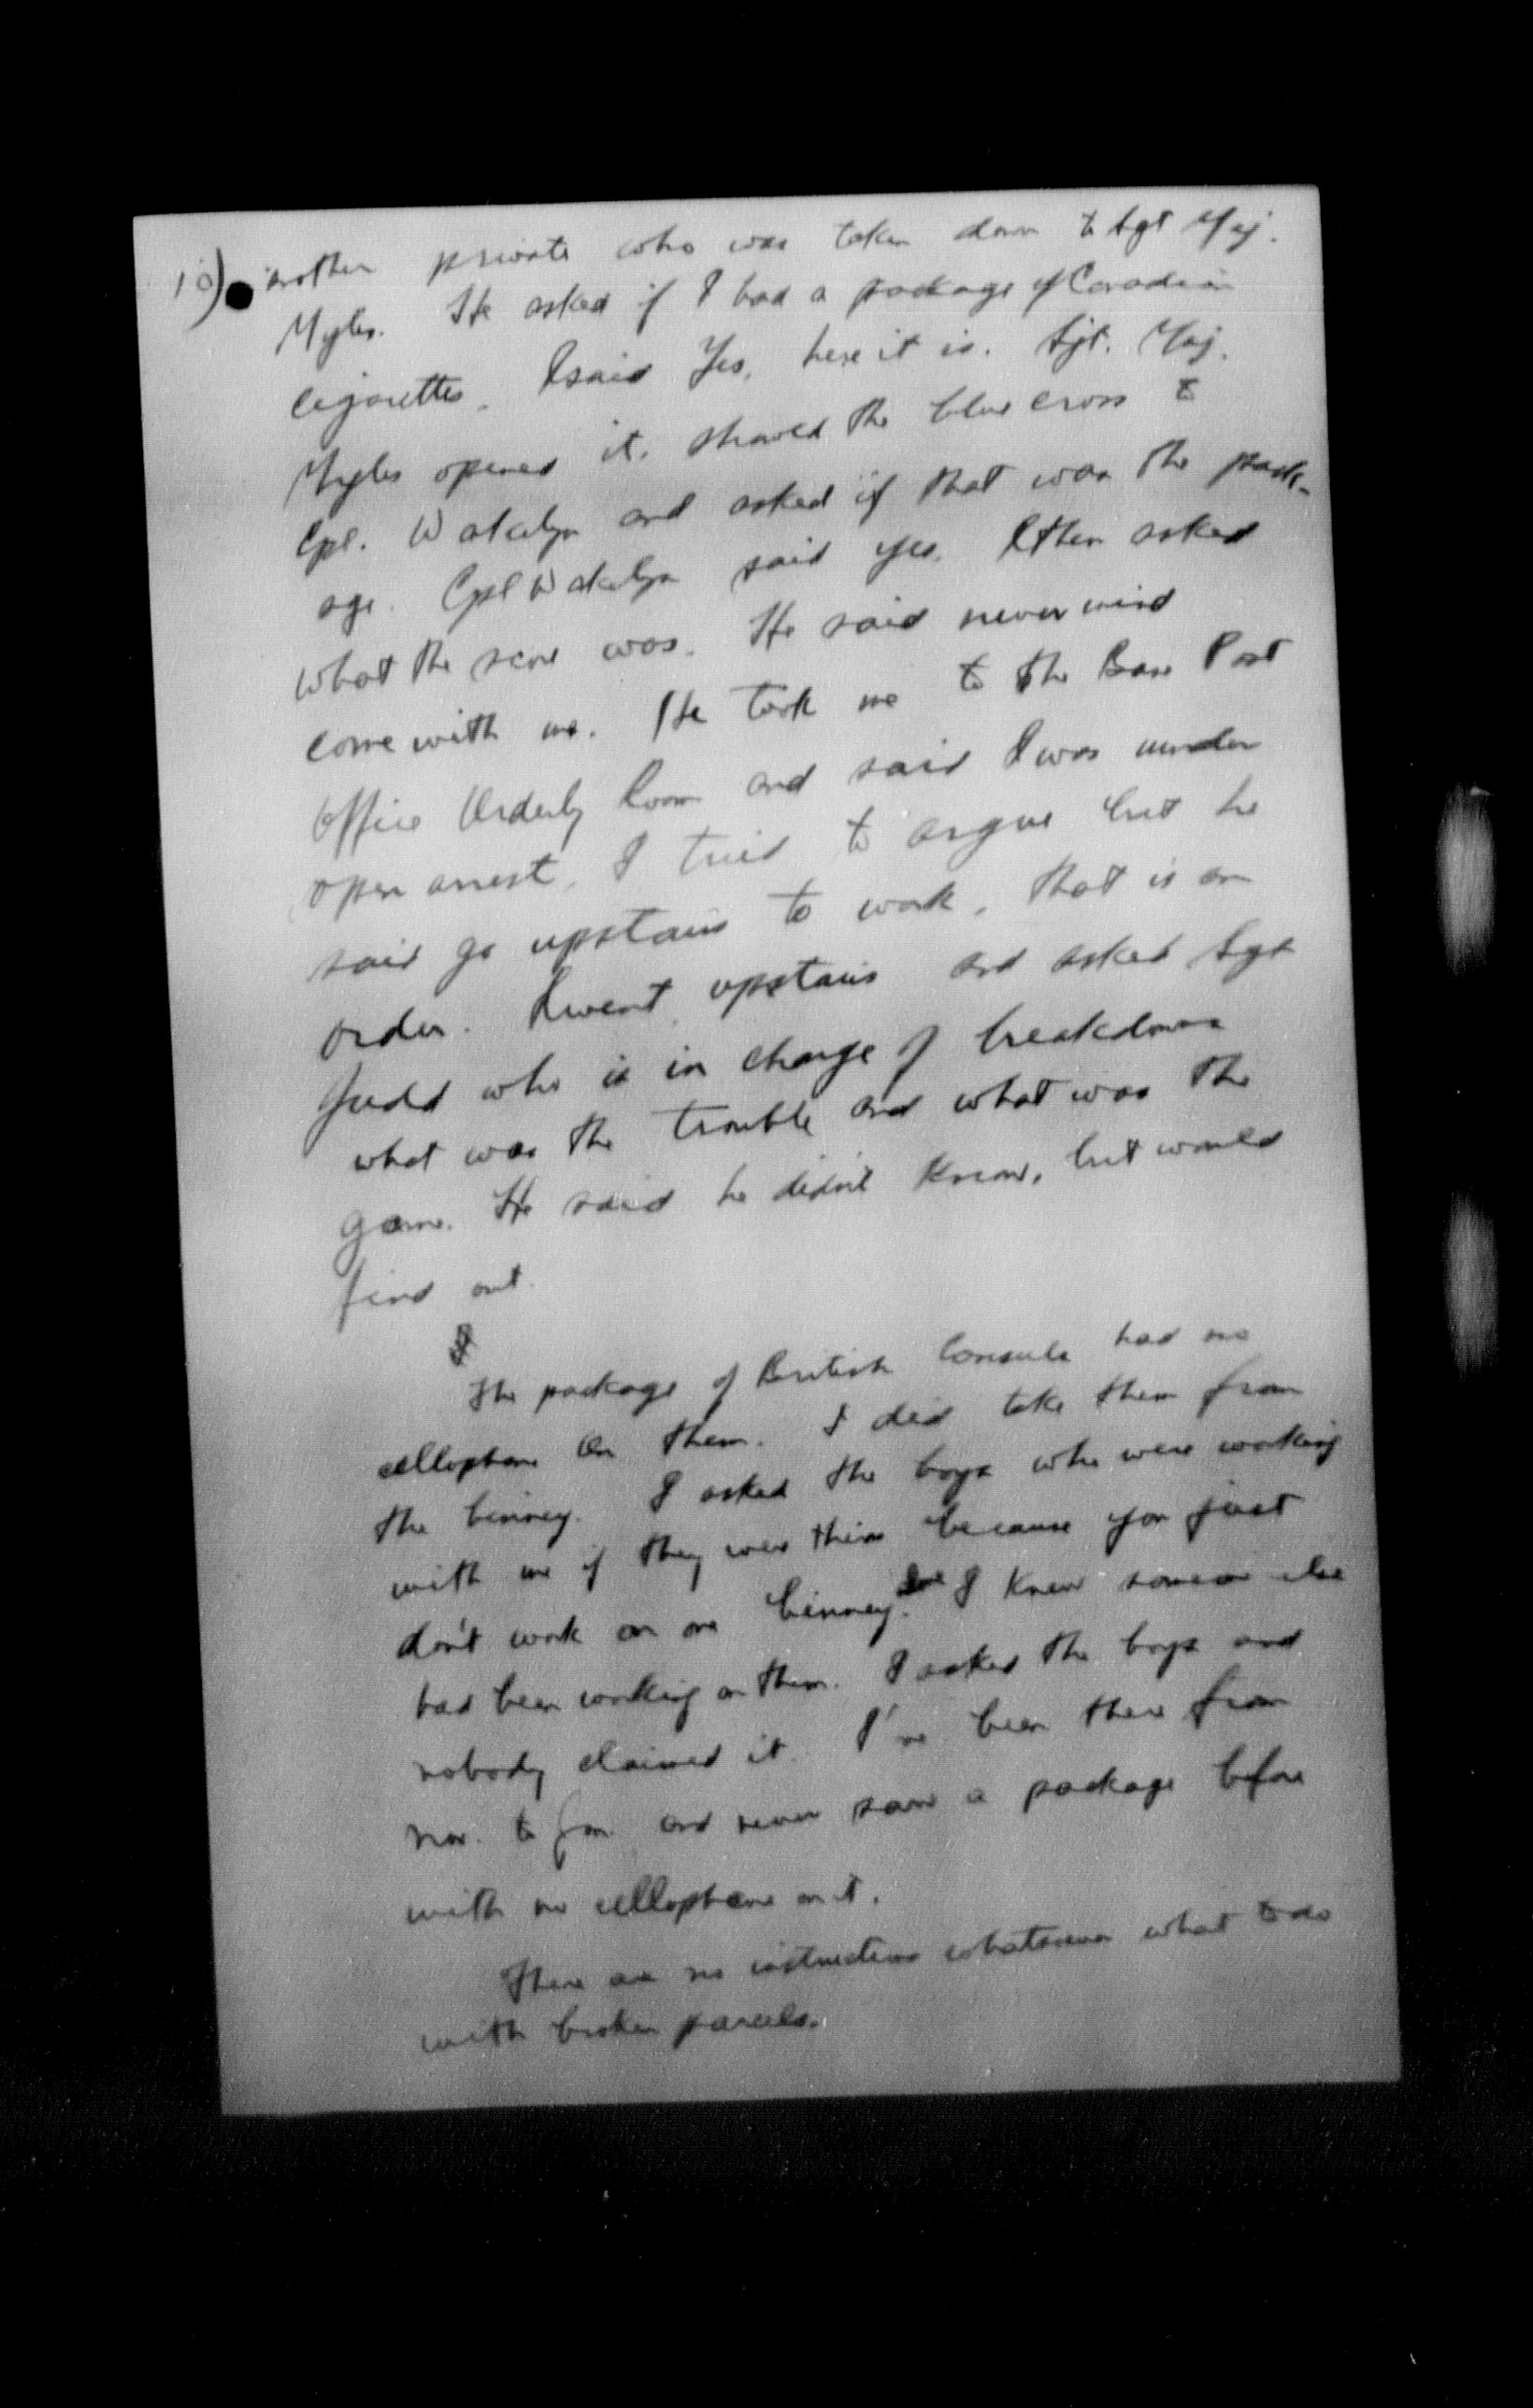 10) another private who was taken down to Sgt Maj.
Myles. He asked if I had a package of Canadian
cigarettes. I said Yes, here it is. Sgt. Maj.
Myles opened it, showed the blue cross to
Cpl. Wakelyn and asked if that was the pack-
age. Cpl Wakelyn said yes. I then asked
what the score was. He said never mind
come with me. He took me to the Base Post
Office Orderly Room and said I was under
open arrest, I tried to argue but he
said go upstairs to work, that is an
order. I went upstairs and asked Sgt
Judd who is in charge of breakdown
what was the trouble and what was the
game. He said he didn't know, but would
find out.
The package of British Consuls had no
cellophane on them. I did take them from
the binney. I asked the boys who were working
with me if they were theirs because you just
don't work on one binney. I knew someone else
had been working on them. I asked the boys and
nobody claimed it. I've been there from
Nov. to Jan. and never saw a package before
with no cellophane on it.
There are no instructions whatsoever what to do
with broken parcels.